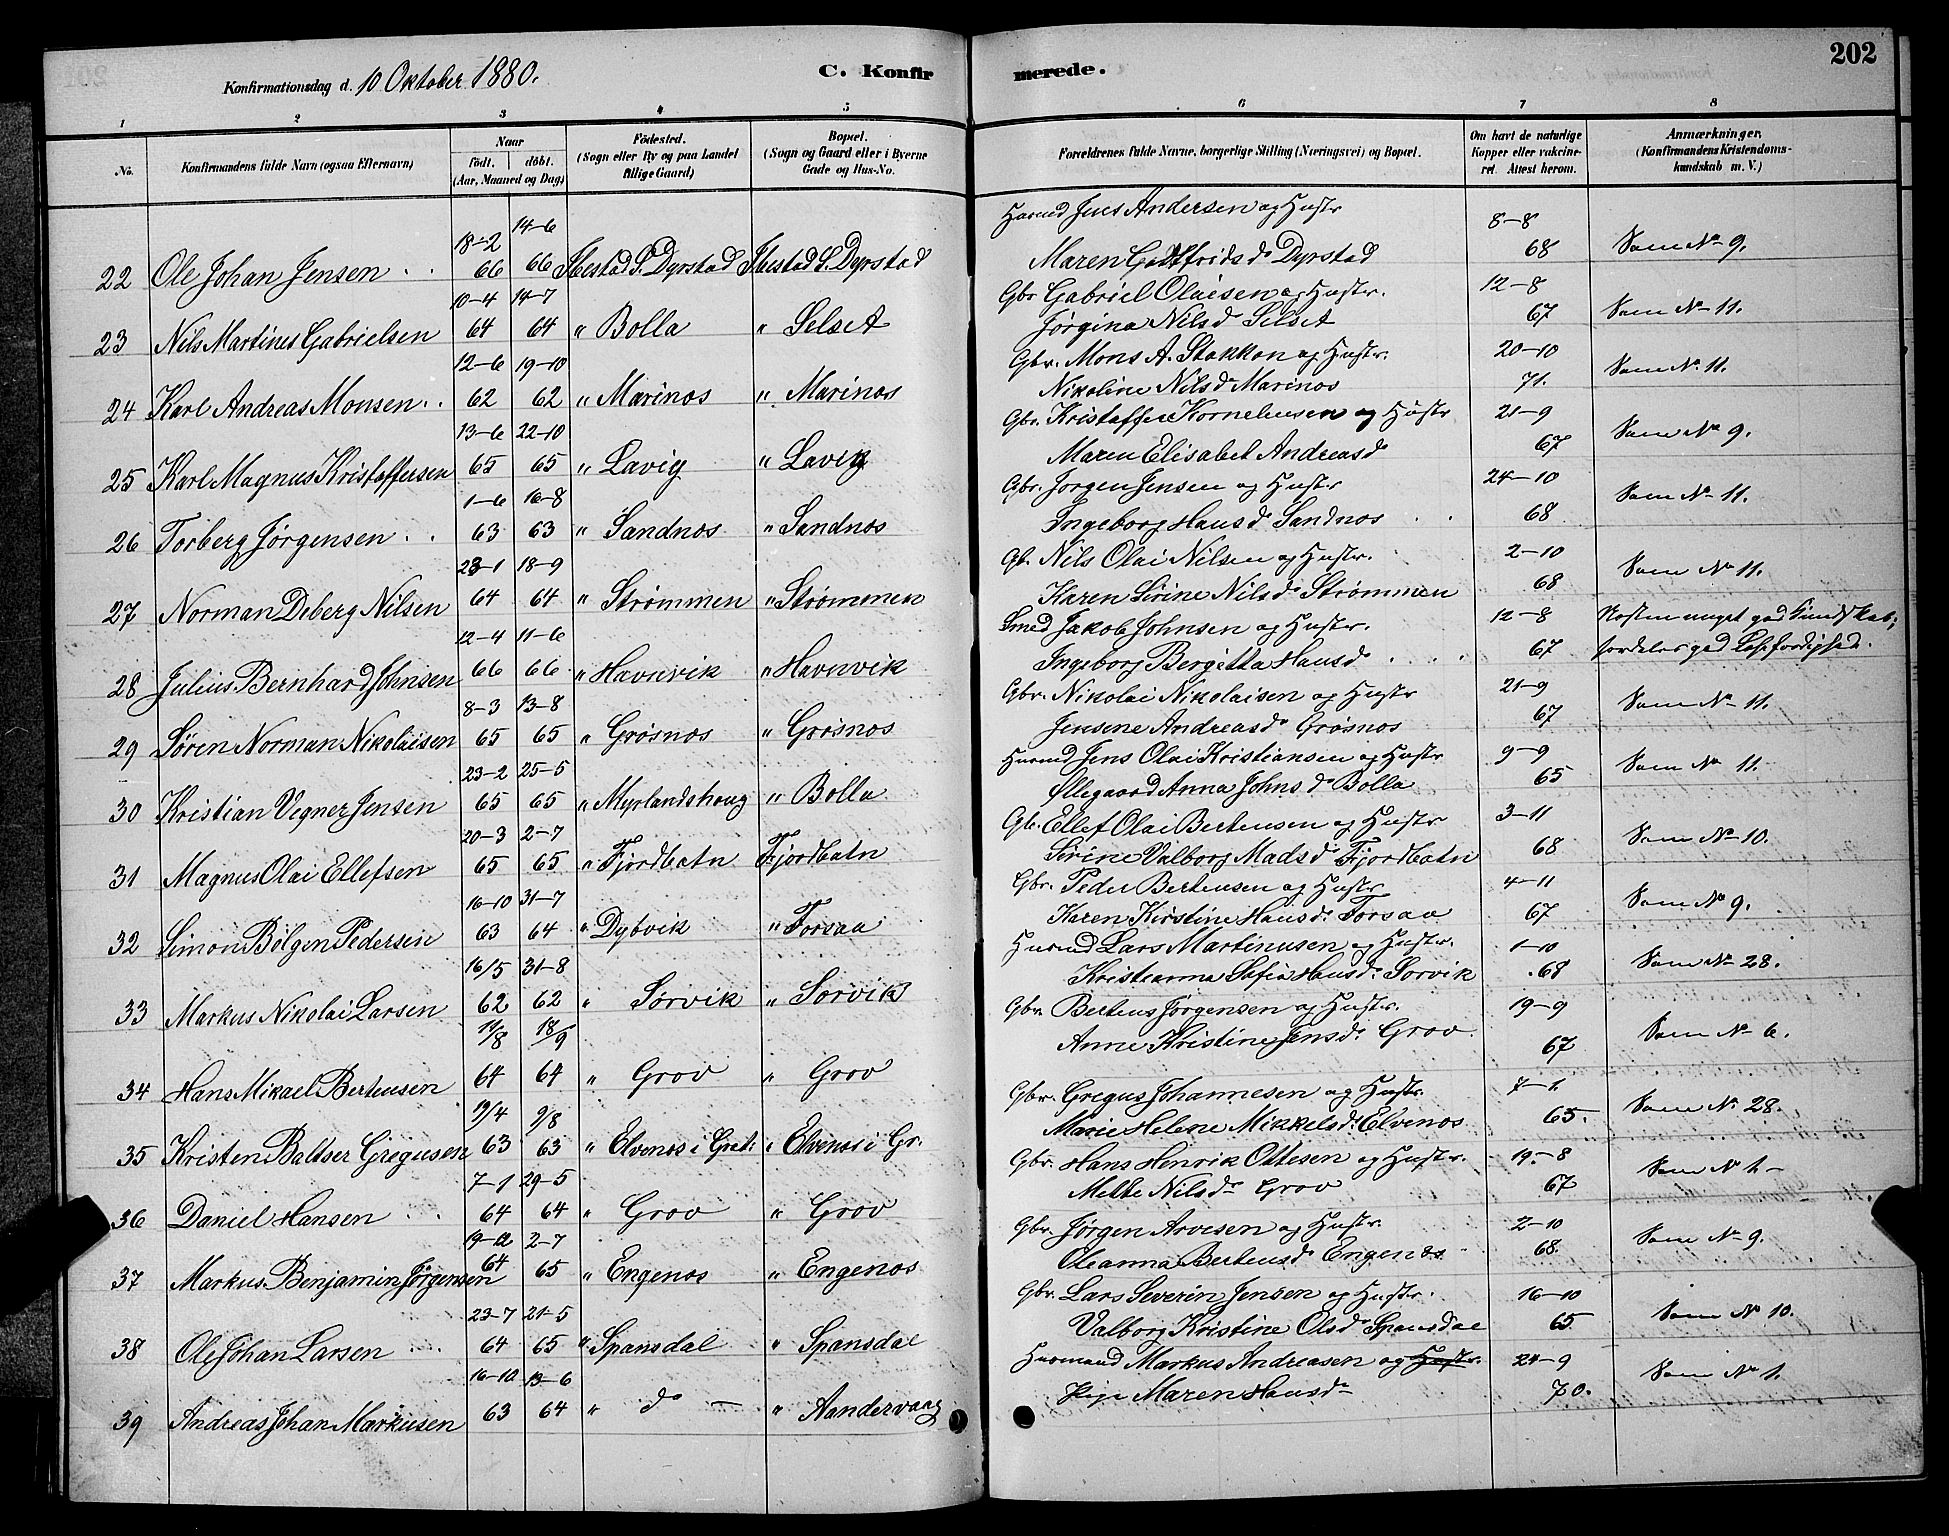 202
Konfirmationsdag d. 10 Oktober 1880.
C. Konfirmerede.
1 2 3 4 5 6 7 8
No.
Konfirmandens fulde Navn (ogsaa Efternavn)
Naar
født. døbt.
(Aar, Maaned og Dag)
Fødested.
(Sogn eller By og paa Landet
tillige Gaard)
Bopæl.
(Sogn og Gaard eller i Byerne
Gade og Hus-No.
Forældrenes fulde Navne, borgerlige Stilling (Næringsvei) og Bopæl.
Om havt de naturlige
Kopper eller vakcine-
ret. Attest herom.
Anmærkninger.
(Konfirmandens Kristendoms-
kundskab m. V.)
18-2 14-6 Husmd Jens Andersen og Hustr 8-8
22 Ole Johan Jensen 66 66 Ibestad S. Dyrstad Ibestad S. Dyrstad Maren Gottfridsd. Dyrstad 68 Som No 9.
10-4 14-7 Gbr Gabriel Olaisen og Hustr. 12-8
23 Nils Martines Gabrielsen 64 64 " Bolla " Selset Jørgina Nilsd Selset 67 Som No 11.
12-6 19-10 Gbr. Mons A. Stokkan og Hustr. 20-10
24 Karl Andreas Monsen 62 62 " Marinos " Marinos Nikoline Nilsd Marinos 71. Som No 11.
13-6 22-10 Gbr. Kristoffer Korneliusen og Hustr 21-9
25 Karl Magnus Kristoffersen 65 65 " Lavig " Lavig Maren Elisabet Andreasd 67 Som No 9.
1-6 16-8 Gbr. Jørgen Jensen og Hustr 24-10
26 Torberg Jørgensen 63 63 " Sandnos " Sandnos Ingeborg Hansd. Sandnos 68 Som No 11.
23-1 18-9 Gb. Nils Olai Nilsen og Hustr. 2-10
27 Norman Deberg Nilsen 64 64 " Strømmen " Strømmen Karen Sirine Nilsd. Strømmen 68 Som No 11.
12-4 11-6 Smed Jakob Johnsen og Hustr. 12-8 Næsten meget god Kundskab;
28 Julius Bernhard Johnsen 66 66 " Havnvik " Havnvik Ingeborg Bergitta Hansd 67
8-3 13-8 Gbr. Nikolai Nikolaisen og Hustr 21-9
29 Søren Norman Nikolaisen 65 65 " Grøsnos " Grøsnos Jensine Andreasd. Grøsnos 67 Som No 11.
23-2 25-5 Husmd Jens Olai Kristiansen og Hustr 9-9
30 Kristian Vegner Jensen 65 65 " Myrlandshaug " Bolla Ollegaard Anna Johnsd Bolla 65 Som No 11.
20-3 2-7 Gb. Ellef Olai Bertensen og Hustr 3-11
31 Magnus Olai Ellefsen 65 65 " Fjordbotn Fjordbotn Sirine Valborg Madsd. Fjordbotn 68 Som No 10.
16-10 31-7 Gbr. Peder Bertensen og Hustr 4-11
32 Simon Bølgen Pedersen 63 64 " Dybvik " Forsaa Karen Kirstine Hansd. Forsaa 67 Som No 9.
16/5 31-8 Husmd Lars Martinusen og Hustr. 1-10
33 Markus Nikolai Larsen 62 62 " Sørvik " Sørvik Kristianna Sofia Hansd. Sørvik 68 Som No 28.
/8 18/9 Gbr. Bertens Jørgensen og Hustr. 19-9
34 Hans Mikael Bertensen 64 64 " Grov " Grov Anne Kristine Jensd. Grov 67 Som No 6.
19/4 9/8 Gbr. Gregus Johannesen og Hustr.
35 Kristen Baltser Gregusen 63 63 " Elvenos i Grat. " Elvenos i Gr. Marie Helene Mikkelsd. Elvenos 65. Som No 28.
7-1 29-5 Gbr. Hans Henrik Ottesen og Hustr. 19-8
36 Daniel Hansen 64 64 " Grov " Grov Mette Nilsd. Grov 67 Som No 1.
19-12 2-7 Gbr. Jørgen Arvesen og Hustr. 2-10
37 Markus Benjamin Jørgensen 64 65 " Engenos " Engenos Oleanna Bertensd Engenos 68. Som No 9.
23-7 21-5 Gbr. Lars Severin Jensen og Hustr. 16-10
38 Ole Johan Larsen 64 65 " Spansdal " Spansdal Valborg Kristine Olsd. Spansdal 65 Som No 10.
16-10 13-6 Husmand Markus Andreasen og Hustr. 24-9
39 Andreas Johan Markusen 63 64 " do — " Aandervaag Pige Maren Hansd 70. Som No 1.